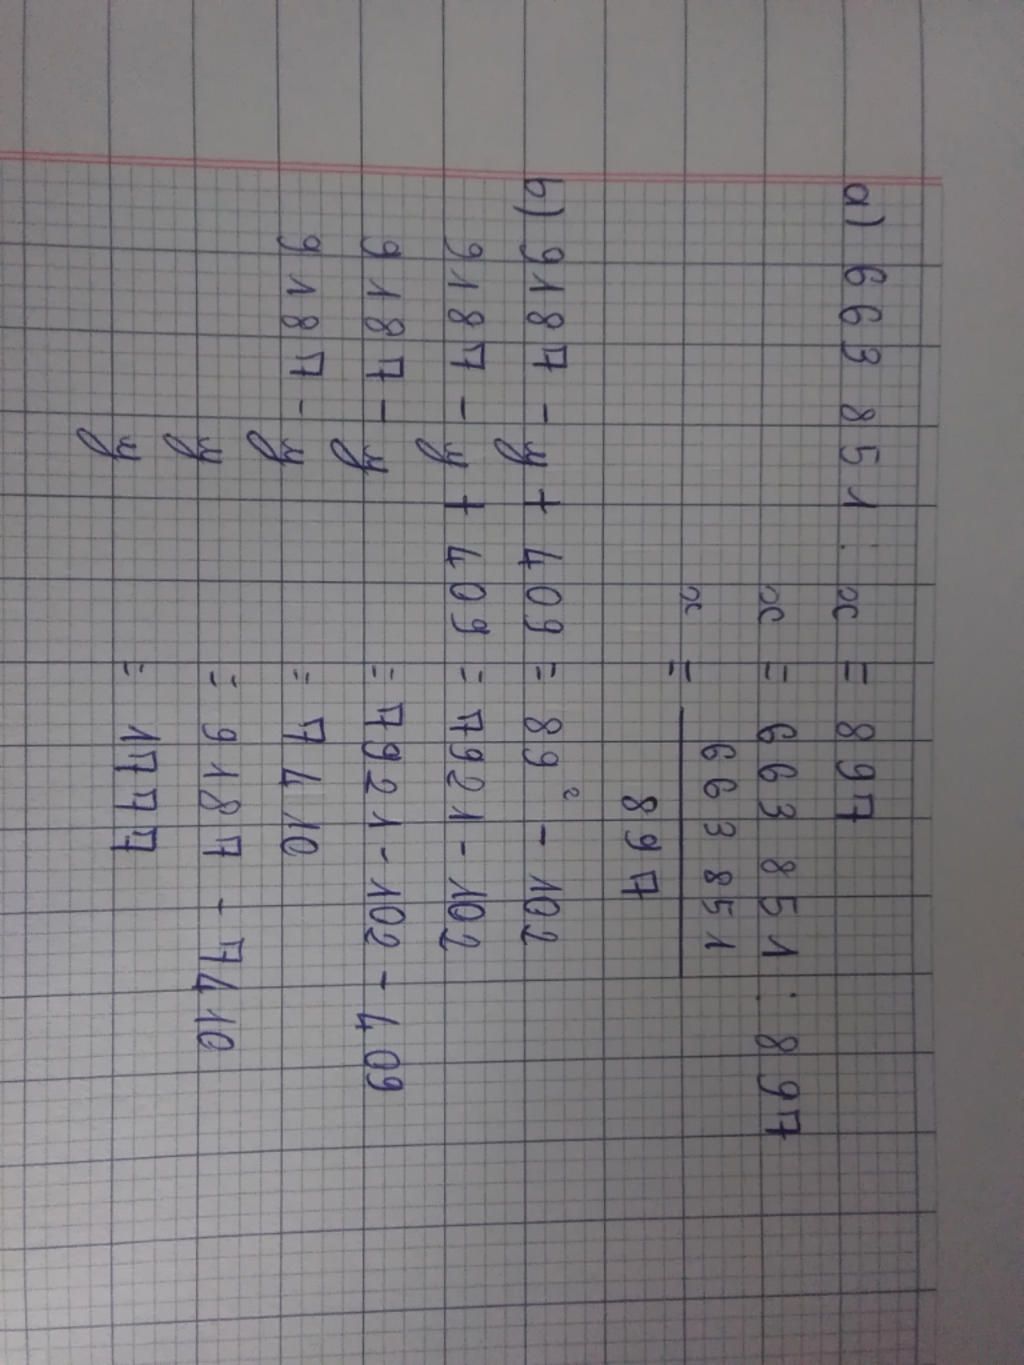 a) 663 851 : x = 897
x = 663 851 : 897
x = 663 851
897
b) 9187 - y + 409 = 89² - 102
9187 - y + 409 = 7921 - 102
9187 - y = 7921 - 102 - 409
9187 - y = 7410
y = 9187 - 7410
y = 1777